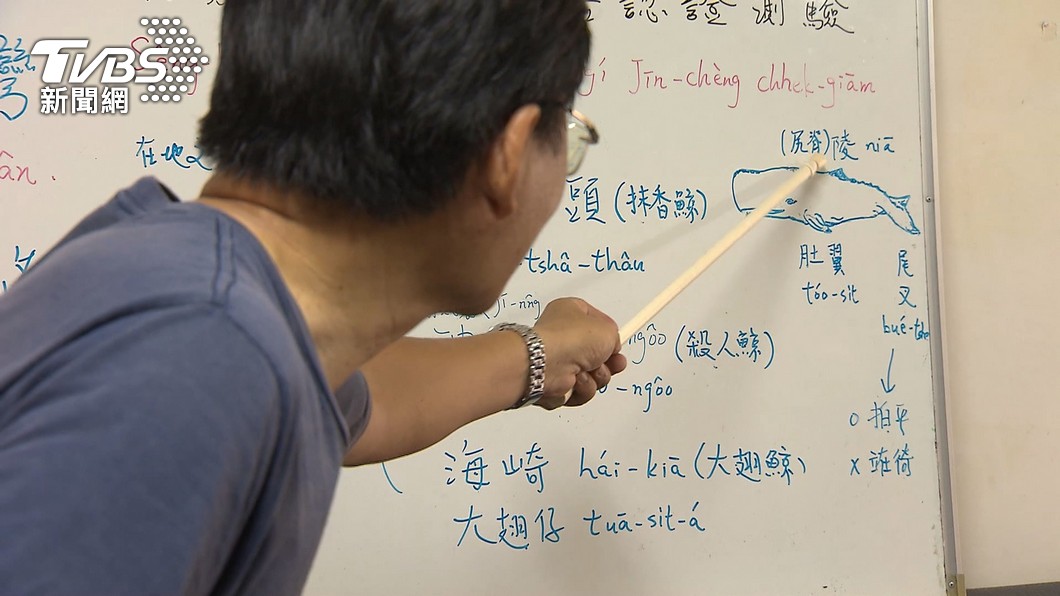 TVBS
新聞網
認證測驗
Jīn-chèng chhek-giām
ân.
在地
(尻脊)陵 niā
頭(抹香鯨)
tshâ-thâu
肚翼
tóo-sit
尾
叉
bué-tshe
jī-nn̂g
ngôo (殺人鯨)
-ngôo
o 拍平
x 徛
海崎 hái-kiā (大翅鯨)
大翅仔 tuā-sit-á